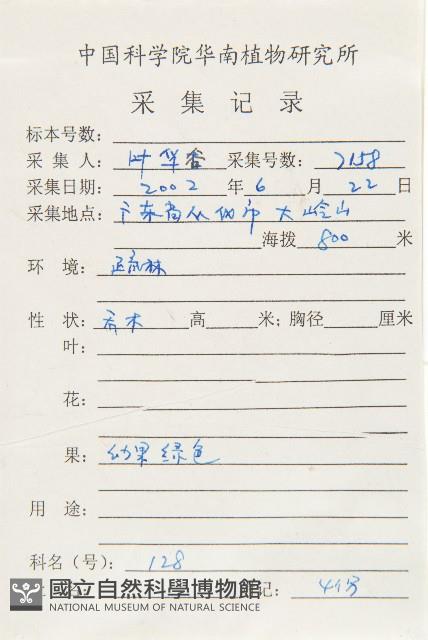 中国科学院华南植物研究所
采集记录
标本号数:
采集人: 叶华谷 采集号数: 7158
采集日期: 2002 年 6 月 22 日
采集地点: 广东省从化市大岭山
海拨 800 米
环境: 疏林
性状: 乔木 高 米; 胸径 厘米
叶:
花:
果: 幼果绿色
用途:
科名(号): 128
記: 4份
國立自然科學博物館
NATIONAL MUSEUM OF NATURAL SCIENCE